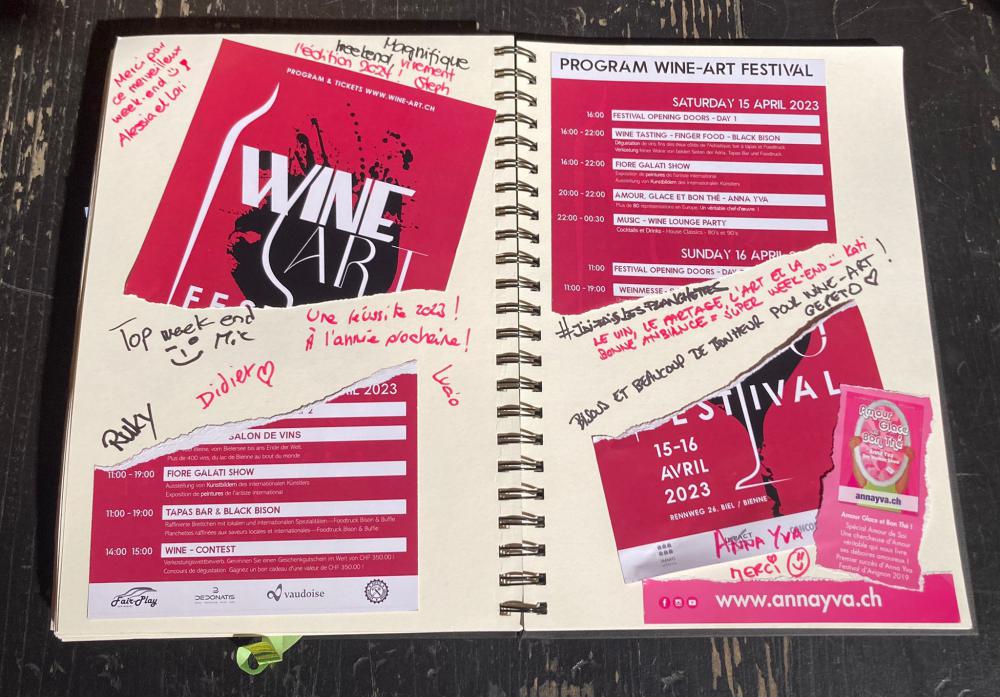 Merci pour
ce merveilleux
week-end !
Alessia et Lori
Magnifique
weekend vivement
l'édition 2024 !
Steph
PROGRAM & TICKETS WWW.WINE-ART.CH
WINE
ART
FES
Top week end
Mic
Une réussite 2023 !
À l'année prochaine !
Didier
Lucio
Ruky
2023
SALON DE VINS
Plus de 400 vins, du lac de Bienne au bout du monde
11:00 - 19:00 FIORE GALATI SHOW
Ausstellung von Kunstbildern des internationalen Künstlers
Exposition de peintures de l'artiste international
11:00 - 19:00 TAPAS BAR & BLACK BISON
Raffinierte Brettchen mit lokalen und internationalen Spezialitäten—Foodtruck Bison & Buffle
Planchettes raffinées aux saveurs locales et internationales—Foodtruck Bison & Buffle
14:00 15:00 WINE - CONTEST
Verkostungswettbewerb. Gewinnen Sie einen Geschenkgutschein im Wert von CHF 350.00 !
Concours de dégustation. Gagnez un bon cadeau d'une valeur de CHF 350.00 !
Fair-Play
DEDONATIS
vaudoise
PROGRAM WINE-ART FESTIVAL
SATURDAY 15 APRIL 2023
16:00 FESTIVAL OPENING DOORS - DAY 1
16:00 - 22:00 WINE TASTING - FINGER FOOD - BLACK BISON
Dégustation de vins fins des deux côtés de l'Adriatique, bar à tapas et Foodtruck
Verkostung feiner Weine von beiden Seiten der Adria, Tapas Bar und Foodtruck
16:00 - 22:00 FIORE GALATI SHOW
Exposition de peintures de l'artiste international
Ausstellung von Kunstbildern des internationalen Künstlers
20:00 - 22:00 AMOUR, GLACE ET BON THÉ - ANNA YVA
Plus de 80 représentations en Europe. Un véritable chef d'œuvre !
22:00 - 00:30 MUSIC - WINE LOUNGE PARTY
Cocktails et Drinks - House Classics - 80's et 90's
SUNDAY 16 APRIL
11:00 FESTIVAL OPENING DOORS - DAY
11:00 - WEINMESSE - S
LE VIN, LE PARTAGE, L'ART ET LA
BONNE AMBIANCE = SUPER WEEK-END Kati !
BISOUS ET BEAUCOUP DE BONHEUR POUR WINE-ART
GEPETO
FESTIVAL
15-16
AVRIL
2023
RENNWEG 26, BIEL / BIENNE
ANNA YVA
MERCI
Amour
Glace
et
Bon Thé
Anna Yva
annayva.ch
Amour Glace et Bon Thé !
Spécial Amour de Soi
Une chercheuse d'Amour
véritable qui nous livre
ses déboires amoureux !
Premier succès d'Anna Yva
Festival d'Avignon 2019
www.annayva.ch